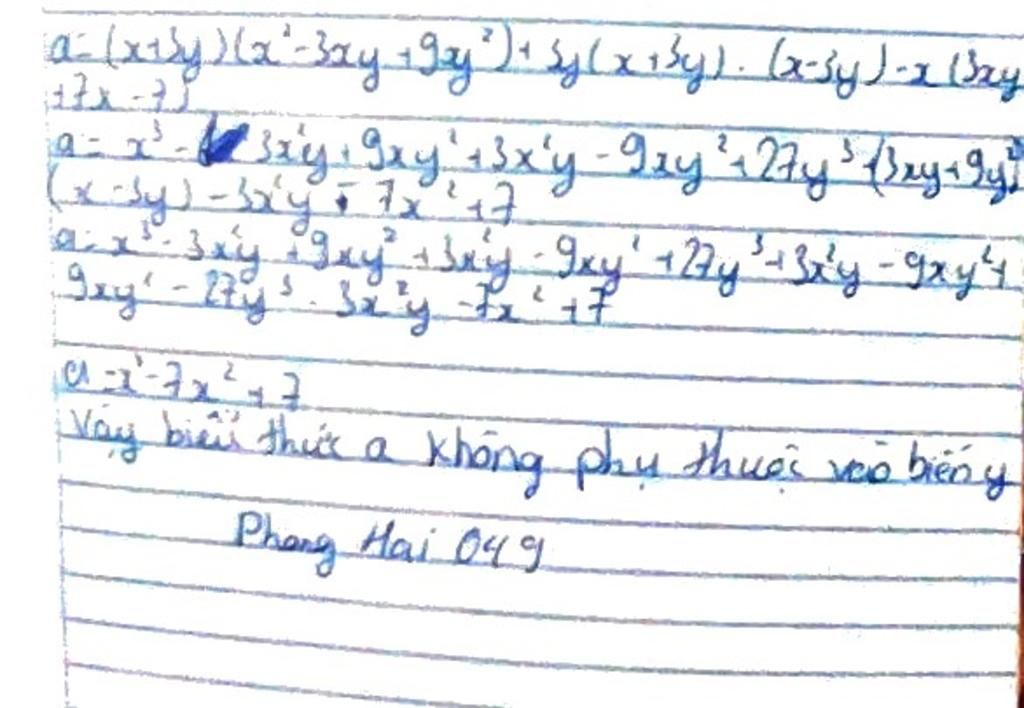 a = (x+3y)(x²-3xy+9xy²)+3y(x+3y).(x-3y)-x(3xy
+7x-7)
a = x³ - 3x²y+9xy²+3x²y-9xy²+27y³+(3xy+9y²)
(x-3y)-3x²y-7x²+7
a = x³-3x²y+9xy²+3x²y-9xy²+27y³+3x²y-9xy²+
9xy²-27y³-3x²y-7x²+7
a = x³-7x²+7
Vậy biểu thức a không phụ thuộc vào biến y
Phong Hai 049